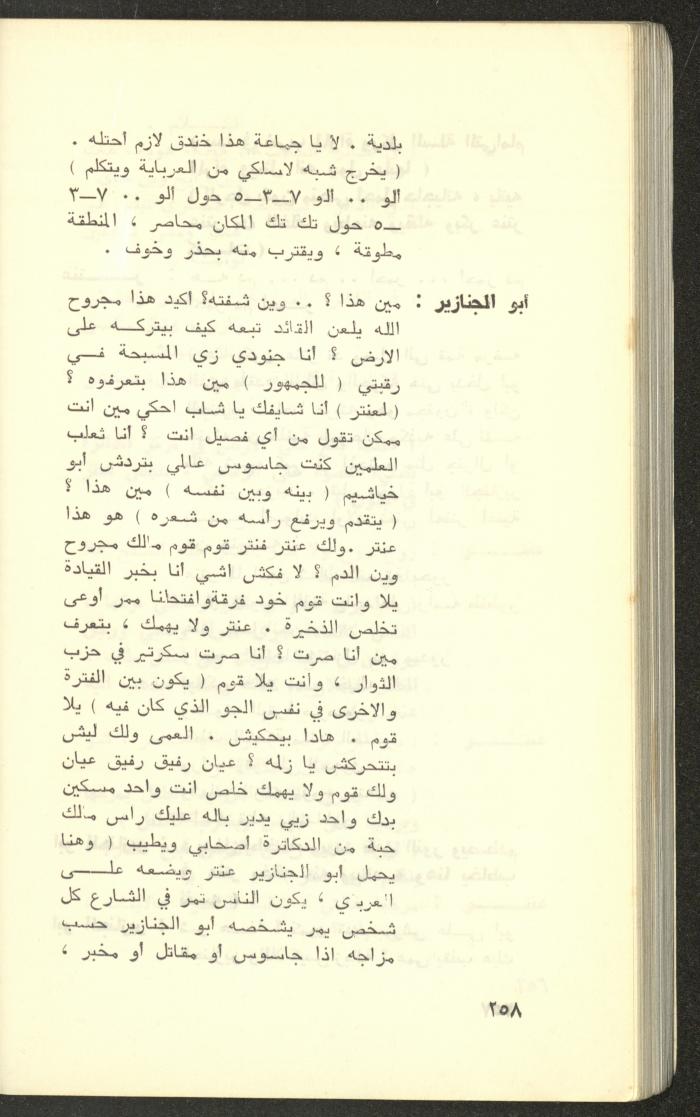 بلدية . لا يا جماعة هذا خندق لازم احتله .
( يخرج شبه لاسلكي من العرباية ويتكلم )
الو .. الو ٧—٣—٥ حول الو .. ٧—٣
—٥ حول تك تك المكان محاصر ، المنطقة
مطوقة ، ويقترب منه بحذر وخوف .
أبو الجنازير : مين هذا ؟ .. وين شفته؟ أكيد هذا مجروح
الله يلعن القائد تبعه كيف بيتركـــه على
الارض ؟ أنا جنودي زي المسبحة فــي
رقبتي ( للجمهور ) مين هذا بتعرفوه ؟
( لعنتر ) أنا شايفك يا شاب احكي مين انت
ممكن تقول من أي فصيل انت ؟ أنا ثعلب
العلمين كنت جاسوس عالمي بتردش أبو
خياشيم ( بينه وبين نفسه ) مين هذا ؟
( يتقدم ويرفع رأسه من شعره ) هو هذا
عنتر .ولك عنتر فنتر قوم قوم مالك مجروح
وين الدم ؟ لا فكش اشي أنا بخبر القيادة
يلا وانت قوم خود فرقةوافتحلنا ممر أوعى
تخلص الذخيرة . عنتر ولا يهمك ، بتعرف
مين أنا صرت ؟ أنا صرت سكرتير في حزب
الثوار ، وانت يلا قوم ( يكون بين الفترة
والاخرى في نفس الجو الذي كان فيه ) يلا
قوم . هادا بيحكيش . العمى ولك ليش
بتتحركش يا زلمه ؟ عيان رفيق رفيق عيان
ولك قوم ولا يهمك خلص انت واحد مسكين
بدك واحد زيي يدير باله عليك راس مالك
حبة من الدكاترة اصحابي ويطيب ( وهنا
يحمل أبو الجنازير عنتر ويضعه علـــى
العرباي ، يكون الناس تمر في الشارع كل
شخص يمر يشخصه أبو الجنازير حسب
مزاجه اذا جاسوس أو مقاتل أو مخبر ،
٢٥٨